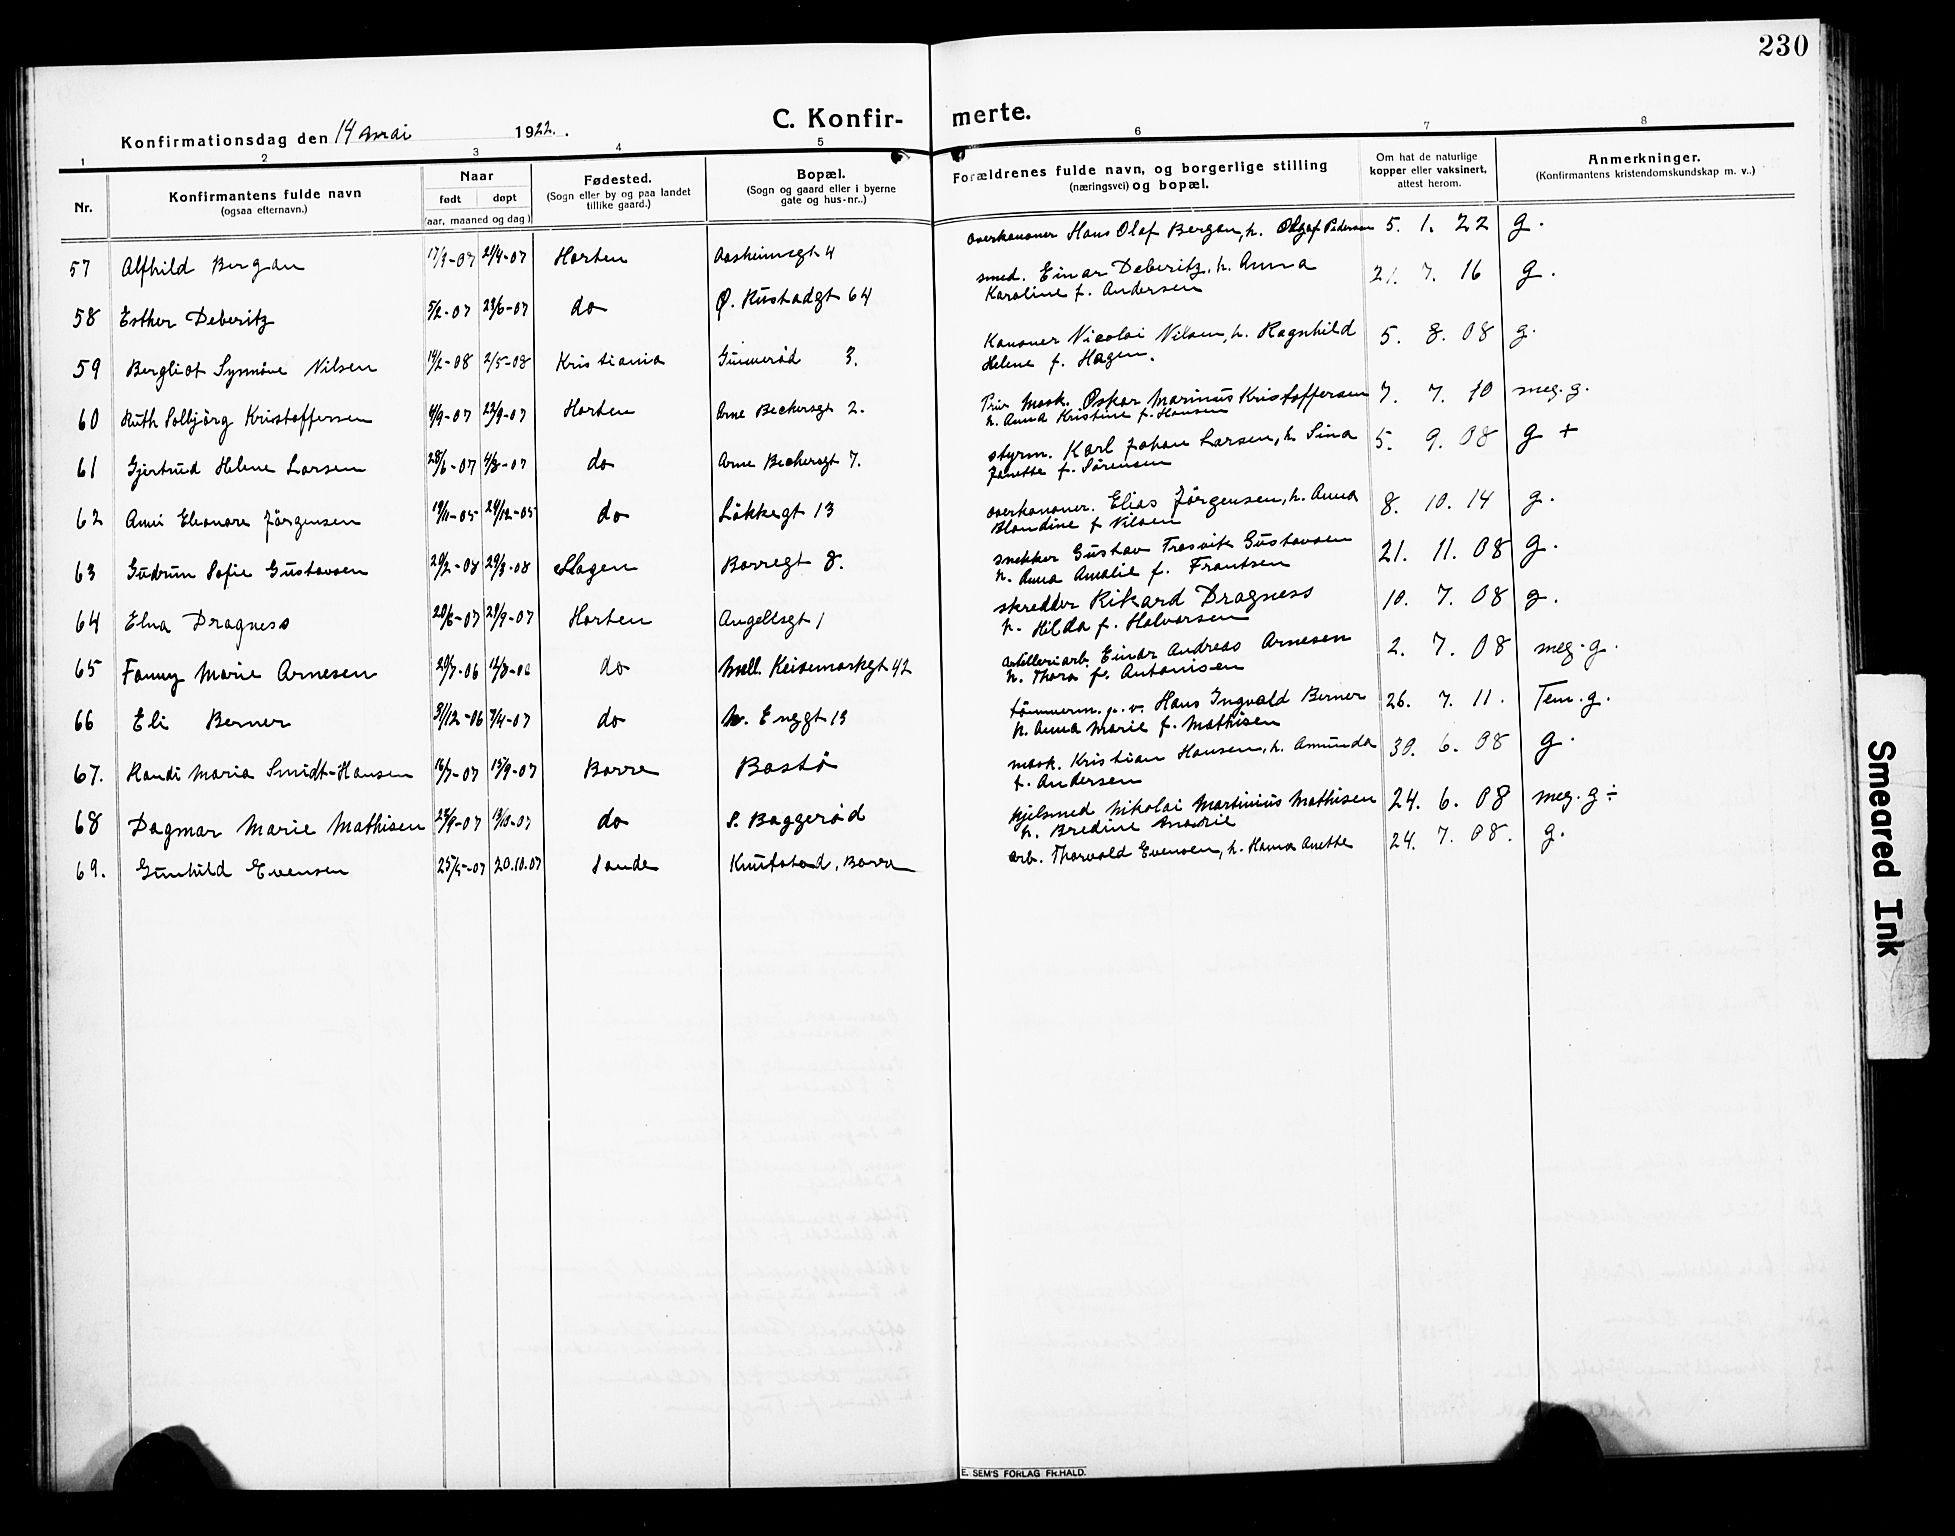 230
Konfirmationsdag den 14 mai 1922.
C. Konfir- merte.
1 2 3 4 5 6 7 8
Nr.
Konfirmantens fulde navn
(ogsaa efternavn.)
Naar
født døpt
(aar, maaned og dag)
Fødested.
(Sogn eller by og paa landet
tillike gaard.)
Bopæl.
(Sogn og gaard eller i byerne
gate og hus-nr..)
Forældrenes fulde navn, og borgerlige stilling
(næringsvei) og bopæl.
Om hat de naturlige
kopper eller vaksinert,
attest herom.
Anmerkninger.
(Konfirmantens kristendomskundskap m. v..)
57 Alfhild Bergan 17/9-07 Horten Aasheimsgt 4 overkanoner Hans Olaf Bergan, h. Pedersen 5. 1. 22 g.
58 Esther Deberitz 5/2-07 23/6-07 do Ø. Rustadgt 64 smed. Einar Deberitz, h. Anna
Karoline f. Andersen 21. 7. 16 g.
59 Bergliot Synnöve Nilsen 14/2-08 2/5-08 Kristiania 3. Kanoner Nicolai Nilsen, h. Ragnhild
Helene f. Hagen. 5. 8. 08 g.
60 Ruth Solbjörg Kristoffersen 4/9-07 29/9-07 Horten Arne Beckersgt 2. Mask. Oskar Marinus Kristoffersen
h. Anna Kristine f. Hansen 7. 7. 10 meg. g.
61 Gjertrud Helene Larsen 28/6-07 4/8-07 do Arne Beckersgt 7. styrm. Karl Johan Larsen, h. Sina
Janette f. Sörensen 5. 9. 08 g +
62 Eleonore Jörgensen 19/11-05 24/12-05 do Lökkegt 13 overkanoner. Elias Jörgensen, h. Anna
Blandine f. Nilsen 8. 10. 14 g.
63 Gudrun Sofie Gustavsen 20/2-08 29/3-08 Slagen Borregt 8. snekker Gustav Gustavsen
h. Anna Amalie f. Frantsen 21. 11. 08 g.
64 Elna Dragness 20/6-07 29/9-07 Horten Angellsgt 1 skredder Rikard Dragness
h. Hilda f. Halvorsen 10. 7. 08 g.
65 Fanny Marie Arnesen 20/7-06 12/8-06 do Mell. Keisemarkgt 42 artilleriarb. Einar Andreas Arnesen
h. Thora f. Antonisen 2. 7. 08 meg. g.
66 Eli Berner 31/12-06 7/4-07 do N. Enggt 13 tömmerm. p. v. Hans Ingvald Berner
h. Anna Marie f. Mathisen 26. 7. 11. Tem. g.
67. Randi Maria Smidt-Hansen 16/7-07 15/9-07 Borre Bastö mask. Kristian Hansen, h. Amunda
f. Andersen 30. 6. 08 g.
68 Dagmar Marie Mathisen 13/10-07 do S. Baggeröd kjelsmed Nikolai Martinius Mathisen
h. Bredine Marie 24. 6. 08 meg. g ÷
69. Gunhild Evensen 20.10.07 Sande Knutstad, Borre arb. Thorvald Evensen, h. Hanna Anette 24. 7. 08. g.
E. SEM'S FORLAG FR.HALD.
Smeared Ink